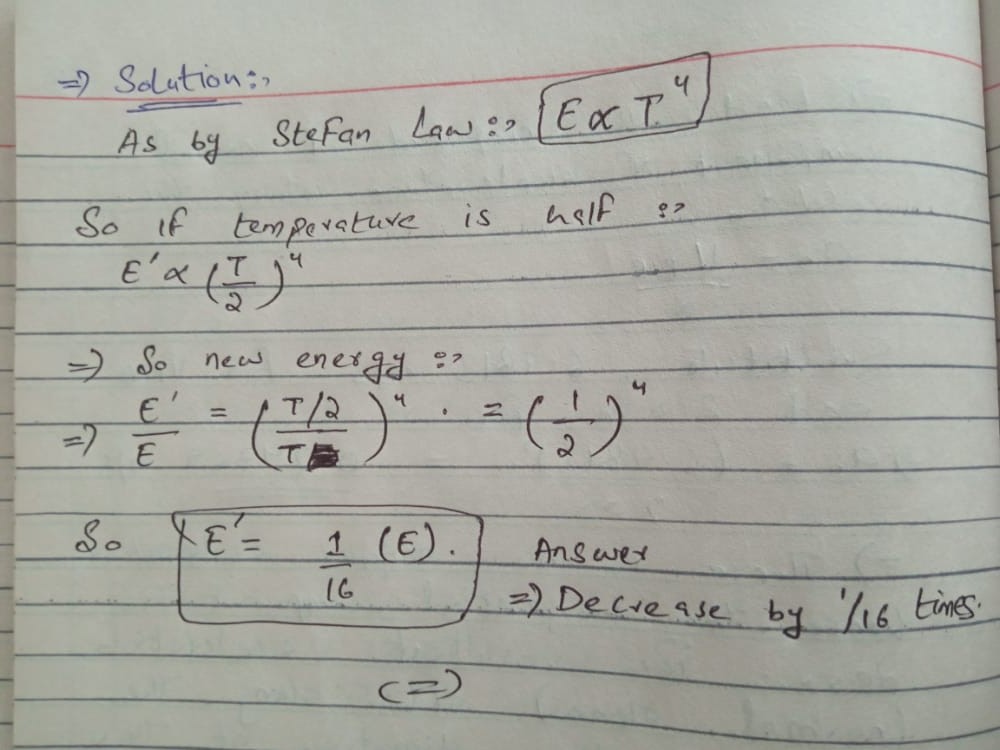 => Solution:-
As by Stefan Law:- E ∝ T⁴
So if temperature is half :-
E' ∝ (T/2)⁴
=> So new energy :-
=> E'/E = ((T/2)/T)⁴ . = (1/2)⁴
So E' = 1/16 (E). Answer
=> Decrease by 1/16 times.
(=)